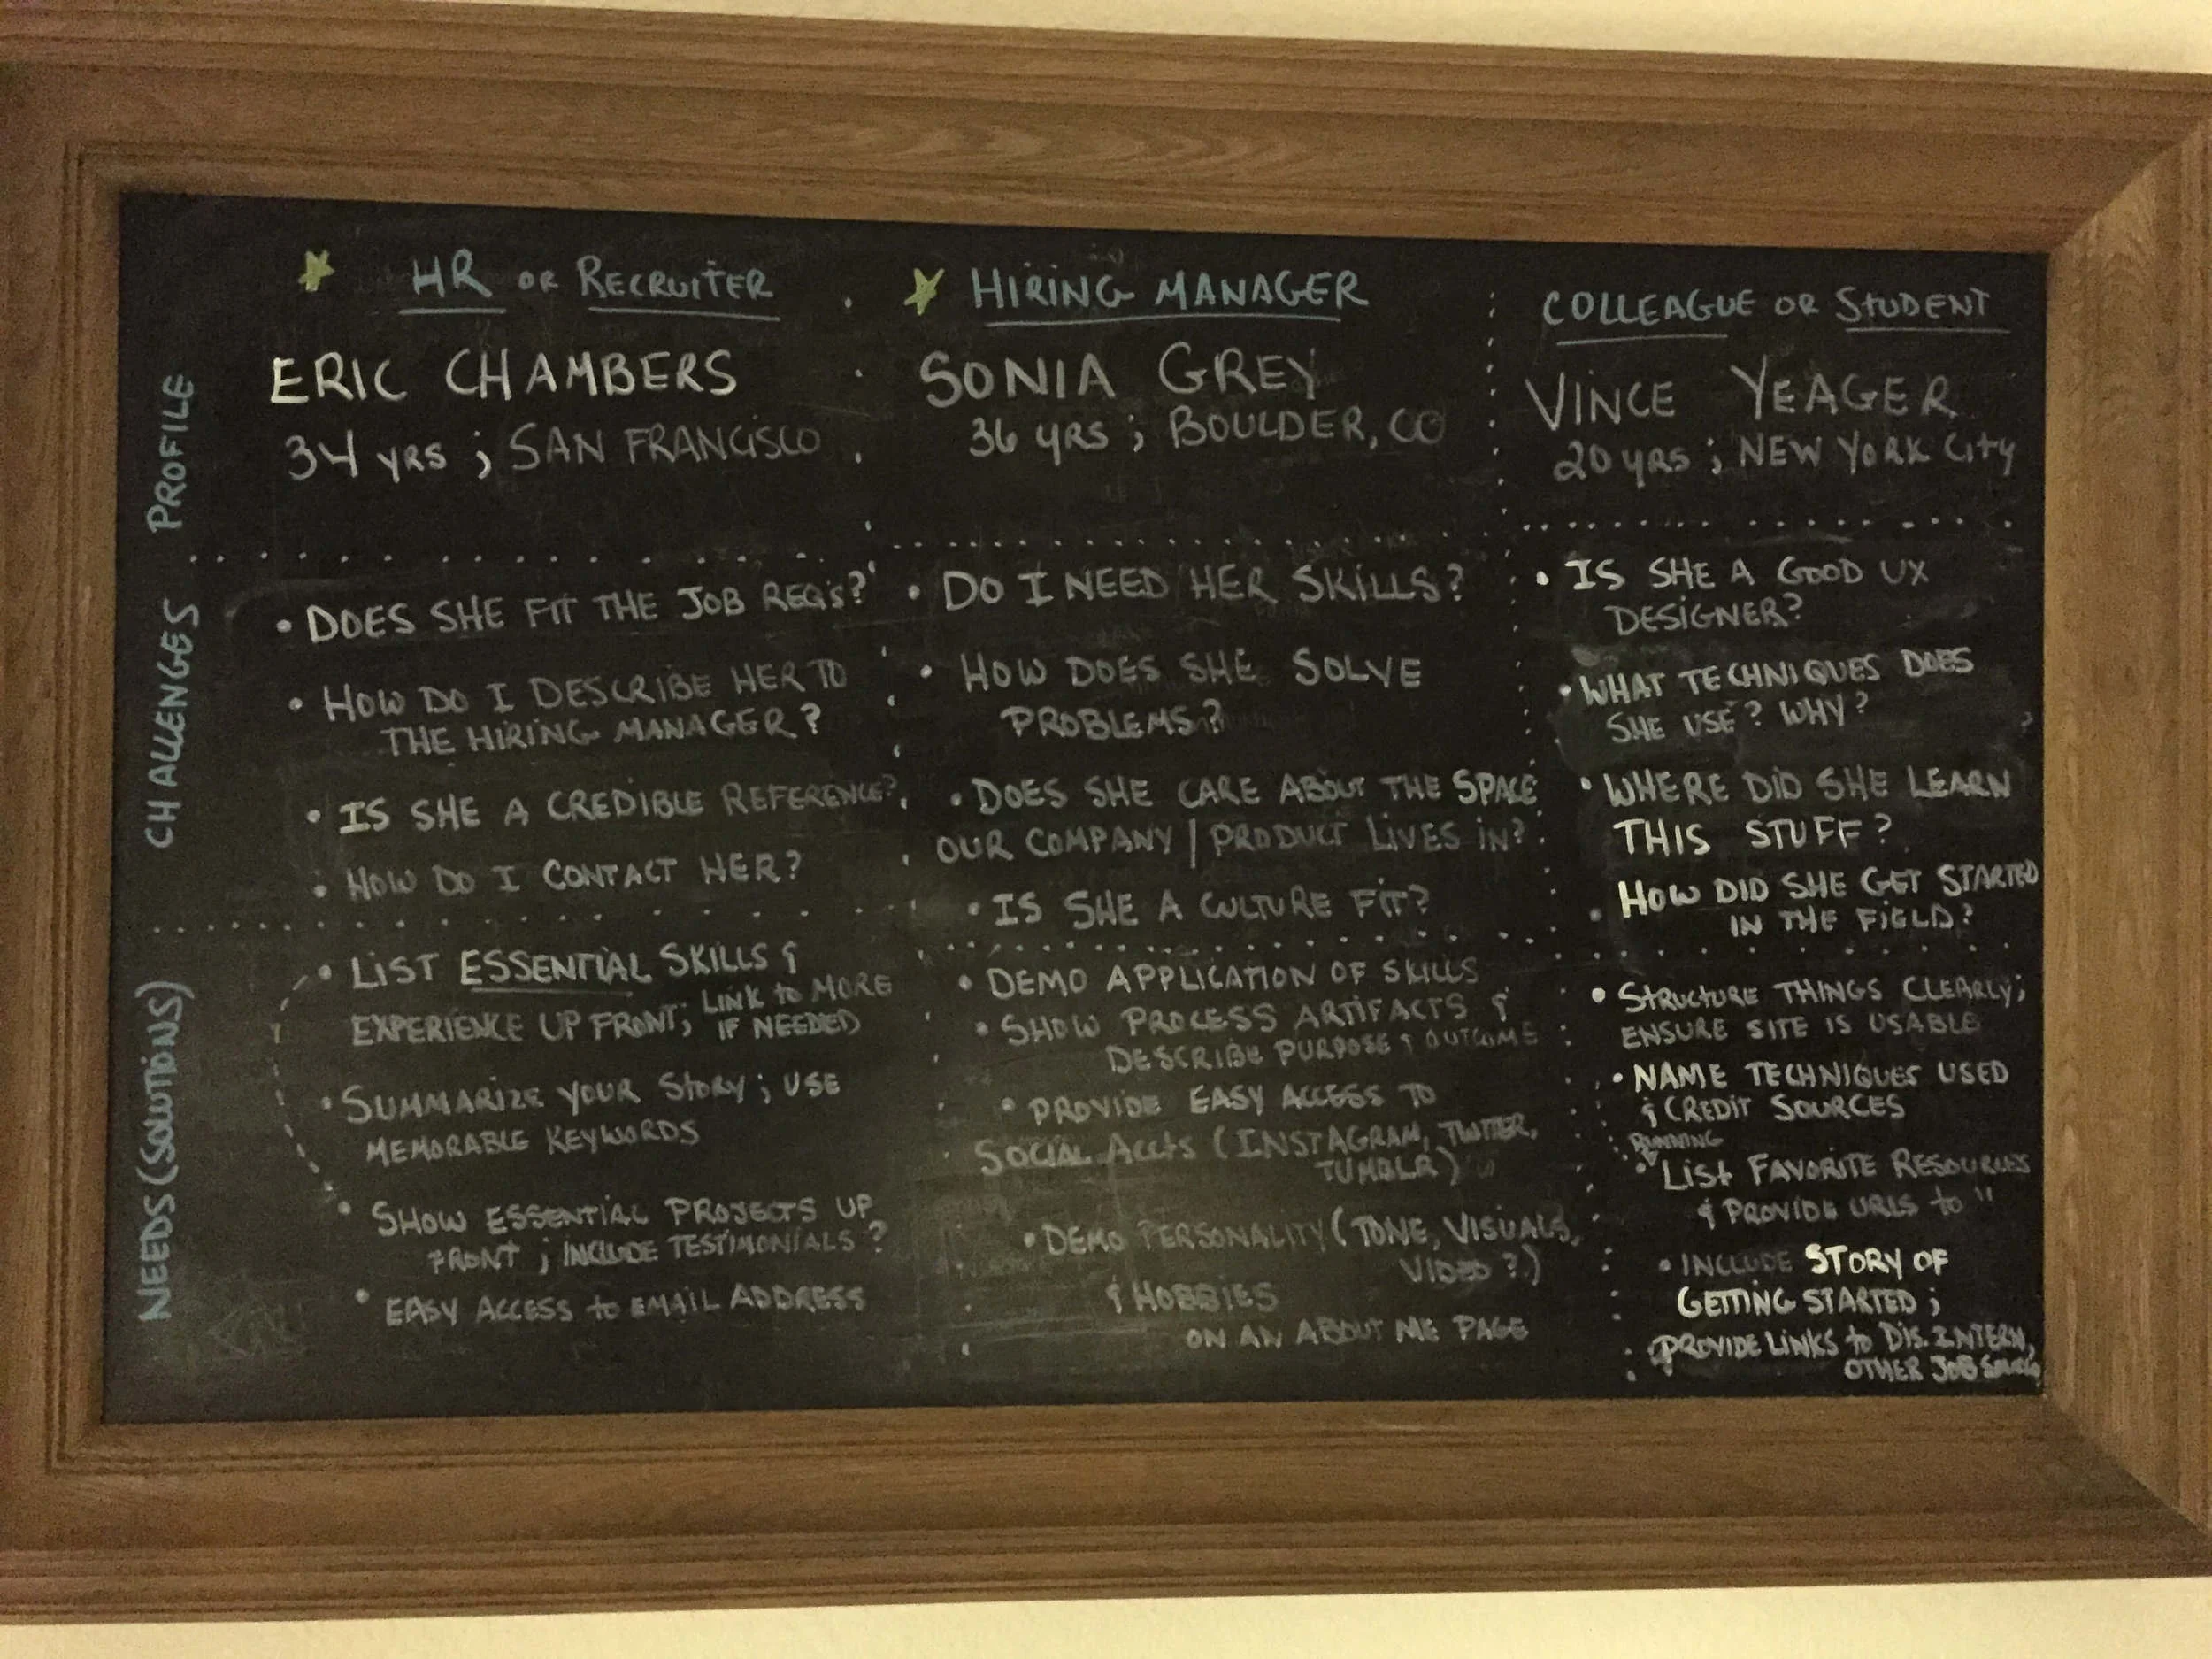 HR OR RECRUITER
HIRING MANAGER
COLLEAGUE OR STUDENT
PROFILE
ERIC CHAMBERS
34 YRS ; SAN FRANCISCO
SONIA GREY
36 YRS ; BOULDER, CO
VINCE YEAGER
20 YRS ; NEW YORK CITY
CHALLENGES
• DOES SHE FIT THE JOB REQS?
• HOW DO I DESCRIBE HER TO
THE HIRING MANAGER?
• IS SHE A CREDIBLE REFERENCE?
• HOW DO I CONTACT HER?
• DO I NEED HER SKILLS?
• HOW DOES SHE SOLVE
PROBLEMS?
• DOES SHE CARE ABOUT THE SPACE
OUR COMPANY | PRODUCT LIVES IN?
• IS SHE A CULTURE FIT?
• IS SHE A GOOD UX
DESIGNER?
• WHAT TECHNIQUES DOES
SHE USE? WHY?
• WHERE DID SHE LEARN
THIS STUFF?
• HOW DID SHE GET STARTED
IN THE FIELD?
NEEDS (SOLUTIONS)
• LIST ESSENTIAL SKILLS &
EXPERIENCE UP FRONT; LINK TO MORE
IF NEEDED
• SUMMARIZE YOUR STORY; USE
MEMORABLE KEYWORDS
• SHOW ESSENTIAL PROJECTS UP
FRONT; INCLUDE TESTIMONIALS?
• EASY ACCESS TO EMAIL ADDRESS
• DEMO APPLICATION OF SKILLS
• SHOW PROCESS ARTIFACTS &
DESCRIBE PURPOSE & OUTCOME
• PROVIDE EASY ACCESS TO
SOCIAL ACCTS (INSTAGRAM, TWITTER,
TUMBLR)
• DEMO PERSONALITY (TONE, VISUALS,
VIDEO?)
& HOBBIES
ON AN ABOUT ME PAGE
• STRUCTURE THINGS CLEARLY;
ENSURE SITE IS USABLE
• NAME TECHNIQUES USED
& CREDIT SOURCES
RUNNING
• LIST FAVORITE RESOURCES
& PROVIDE URLS TO "
• INCLUDE STORY OF
GETTING STARTED;
PROVIDE LINKS TO DIS. INTERN,
OTHER JOB